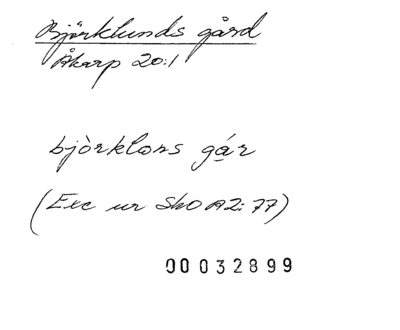 Björklunds gård
Åkarp 20:1
bjòrklons gár
(Exc ur SkO A2: 77)
00032899